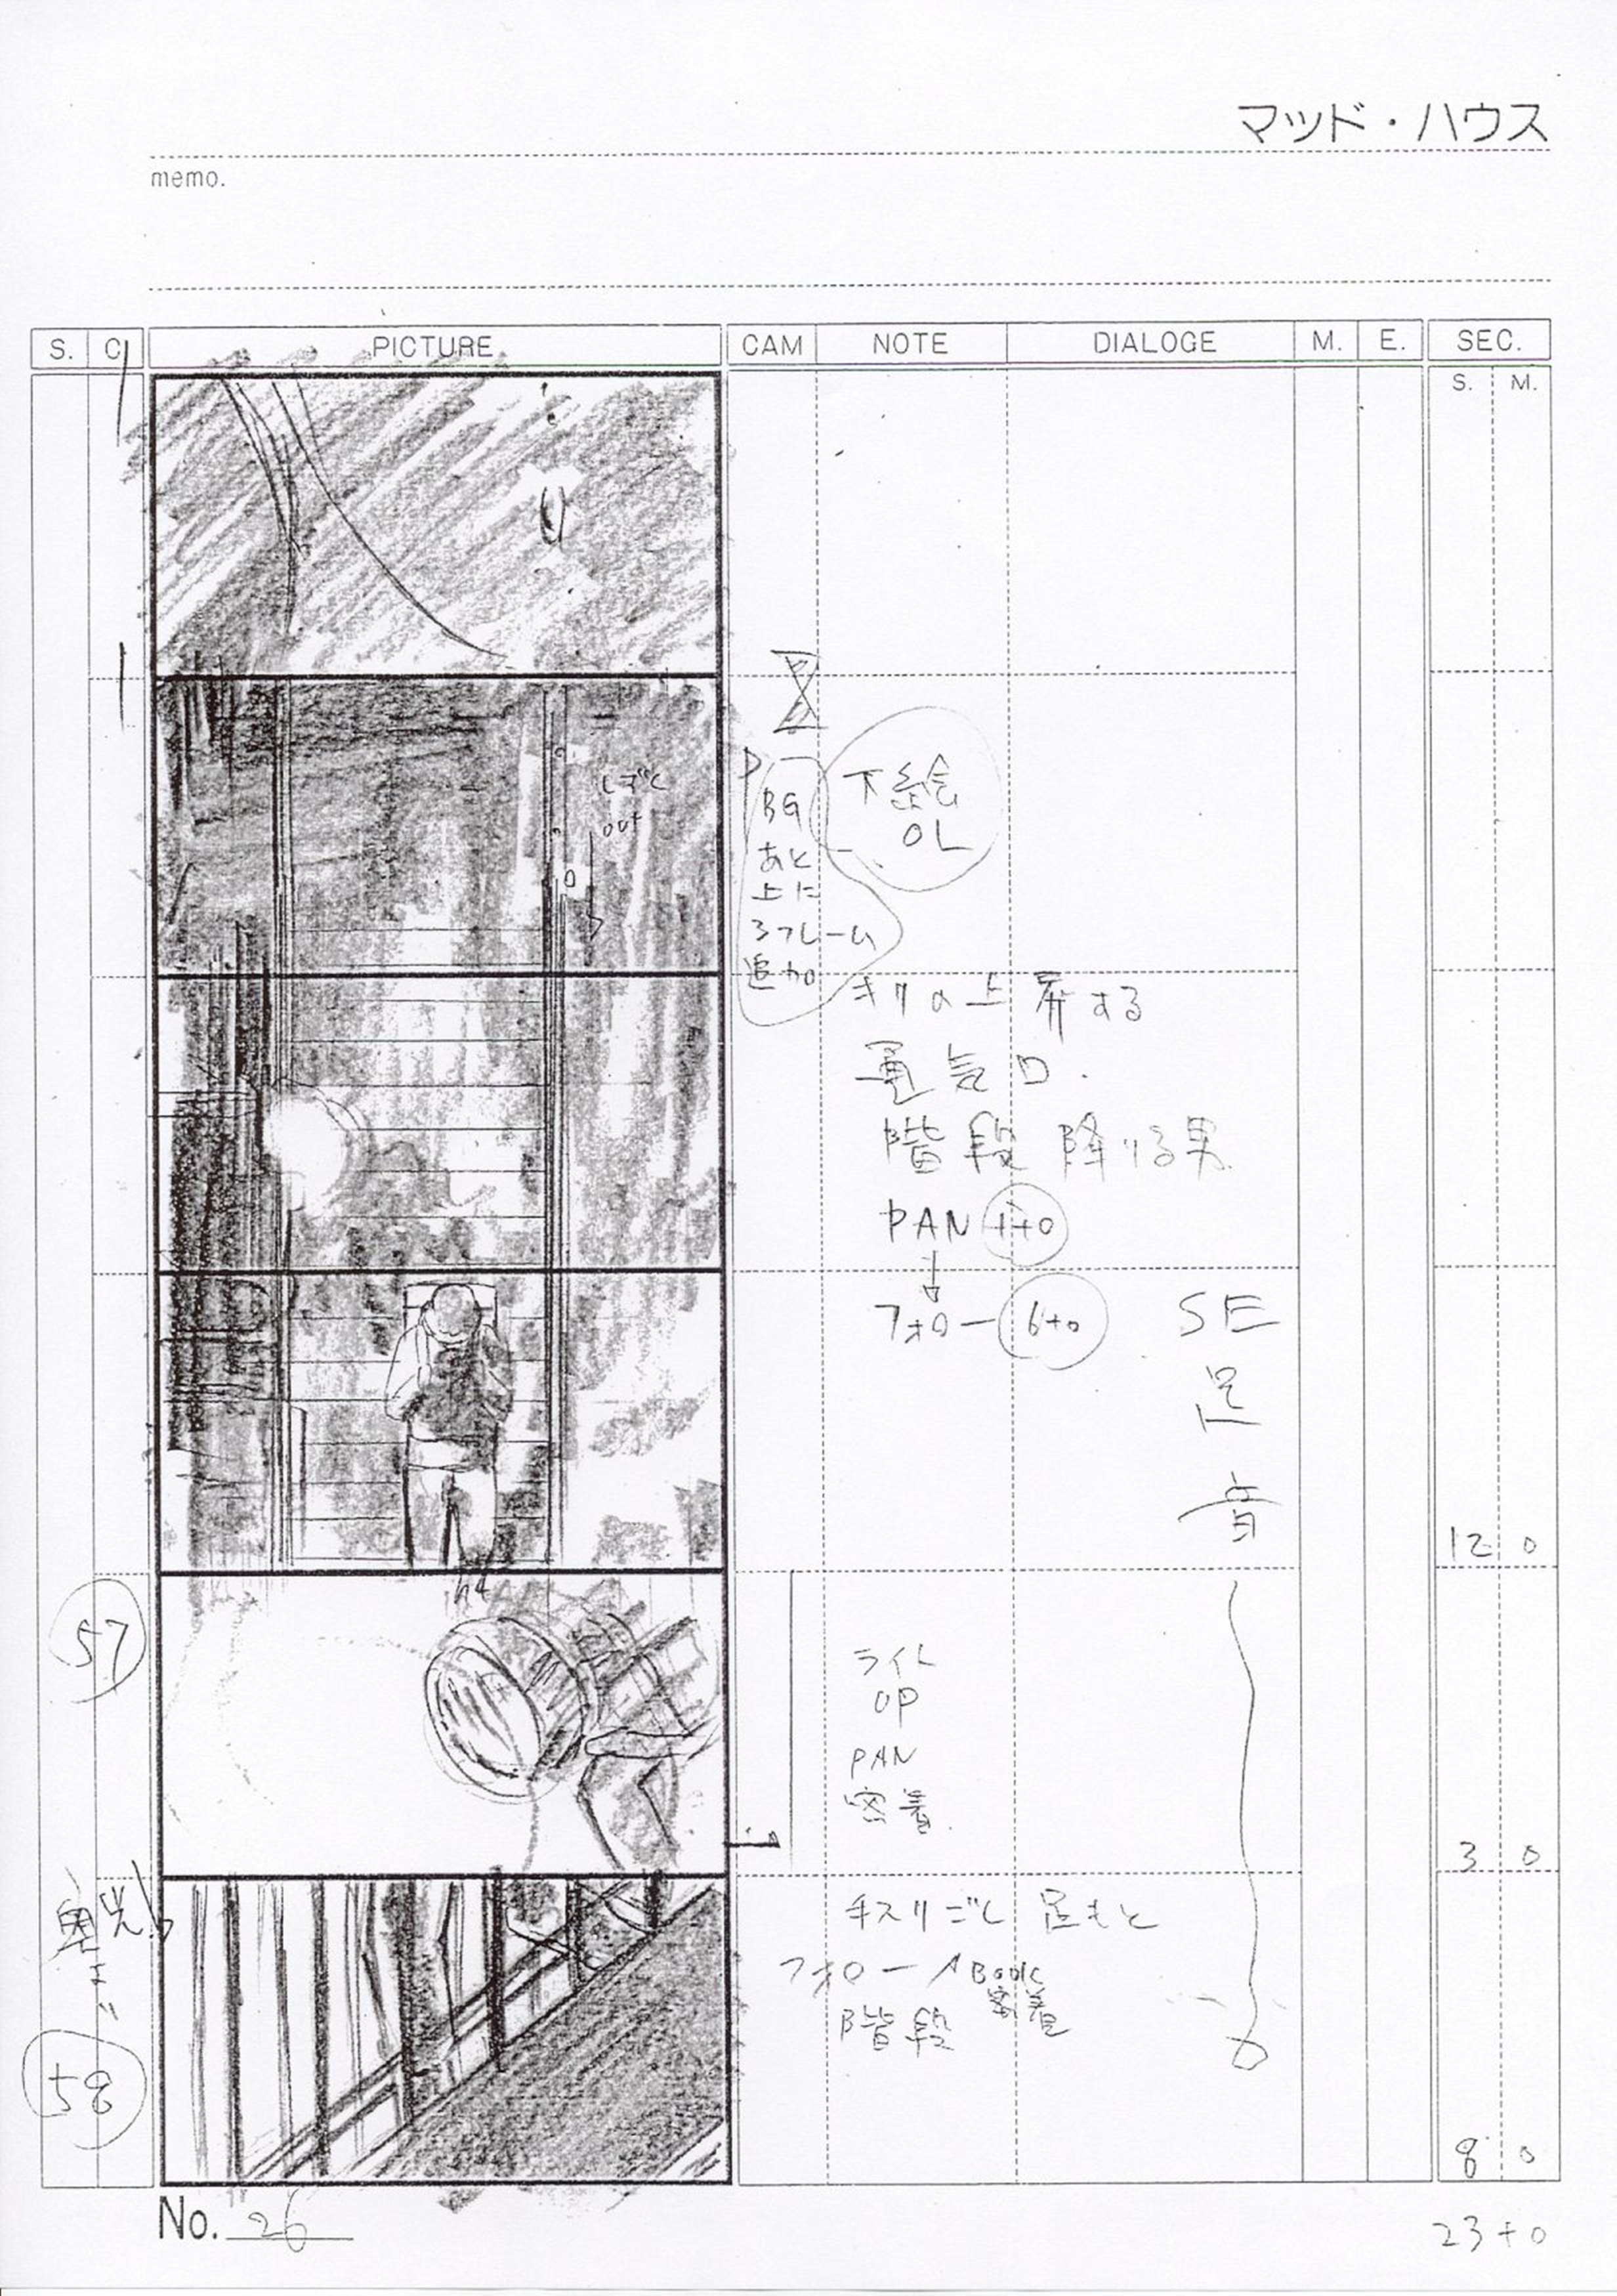 マッド・ハウス
memo.
S. C. PICTURE CAM NOTE DIALOGE M. E. SEC.
S. M.
しずく
out
BG
あと
上に
3フレーム
追加
下絵
OL
キリの上昇する
通気口.
階段 降りる男
PAN 1+0
フォロー 6+0
SE
足
音
12 0
57
ライト
UP
PAN
密着
3 0
58
手スリごし 足もと
フォロー Book
密着
階段
8 0
No. 26
23+0